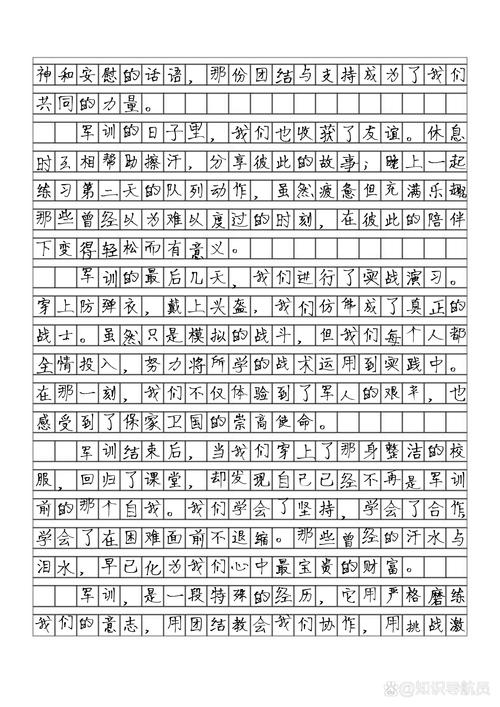 神和安慰的话语，那份团结与支持成为了我们
共同的力量。
军训的日子里，我们也收获了友谊。休息
时互相帮助擦汗，分享彼此的故事；晚上一起
练习第二天的队列动作，虽然疲惫但充满乐趣
那些曾经以为难以度过的时刻，在彼此的陪伴
下变得轻松而有意义。
军训的最后几天，我们进行了实战演习。
穿上防弹衣，戴上头盔，我们仿佛成了真正的
战士。虽然只是模拟的战斗，但我们每个人都
全情投入，努力将所学的战术运用到实践中。
在那一刻，我们不仅体验到了军人的艰辛，也
感受到了保家卫国的崇高使命。
军训结束后，当我们穿上了那身整洁的校
服，回归了课堂，却发现自己已经不再是军训
前的那个自我。我们学会了坚持，学会了合作
学会了在困难面前不退缩。那些曾经的汗水与
泪水，早已化为我们心中最宝贵的财富。
军训，是一段特殊的经历，它用严格磨练
我们的意志，用团结教会我们协作，用挑战激
知识导航员